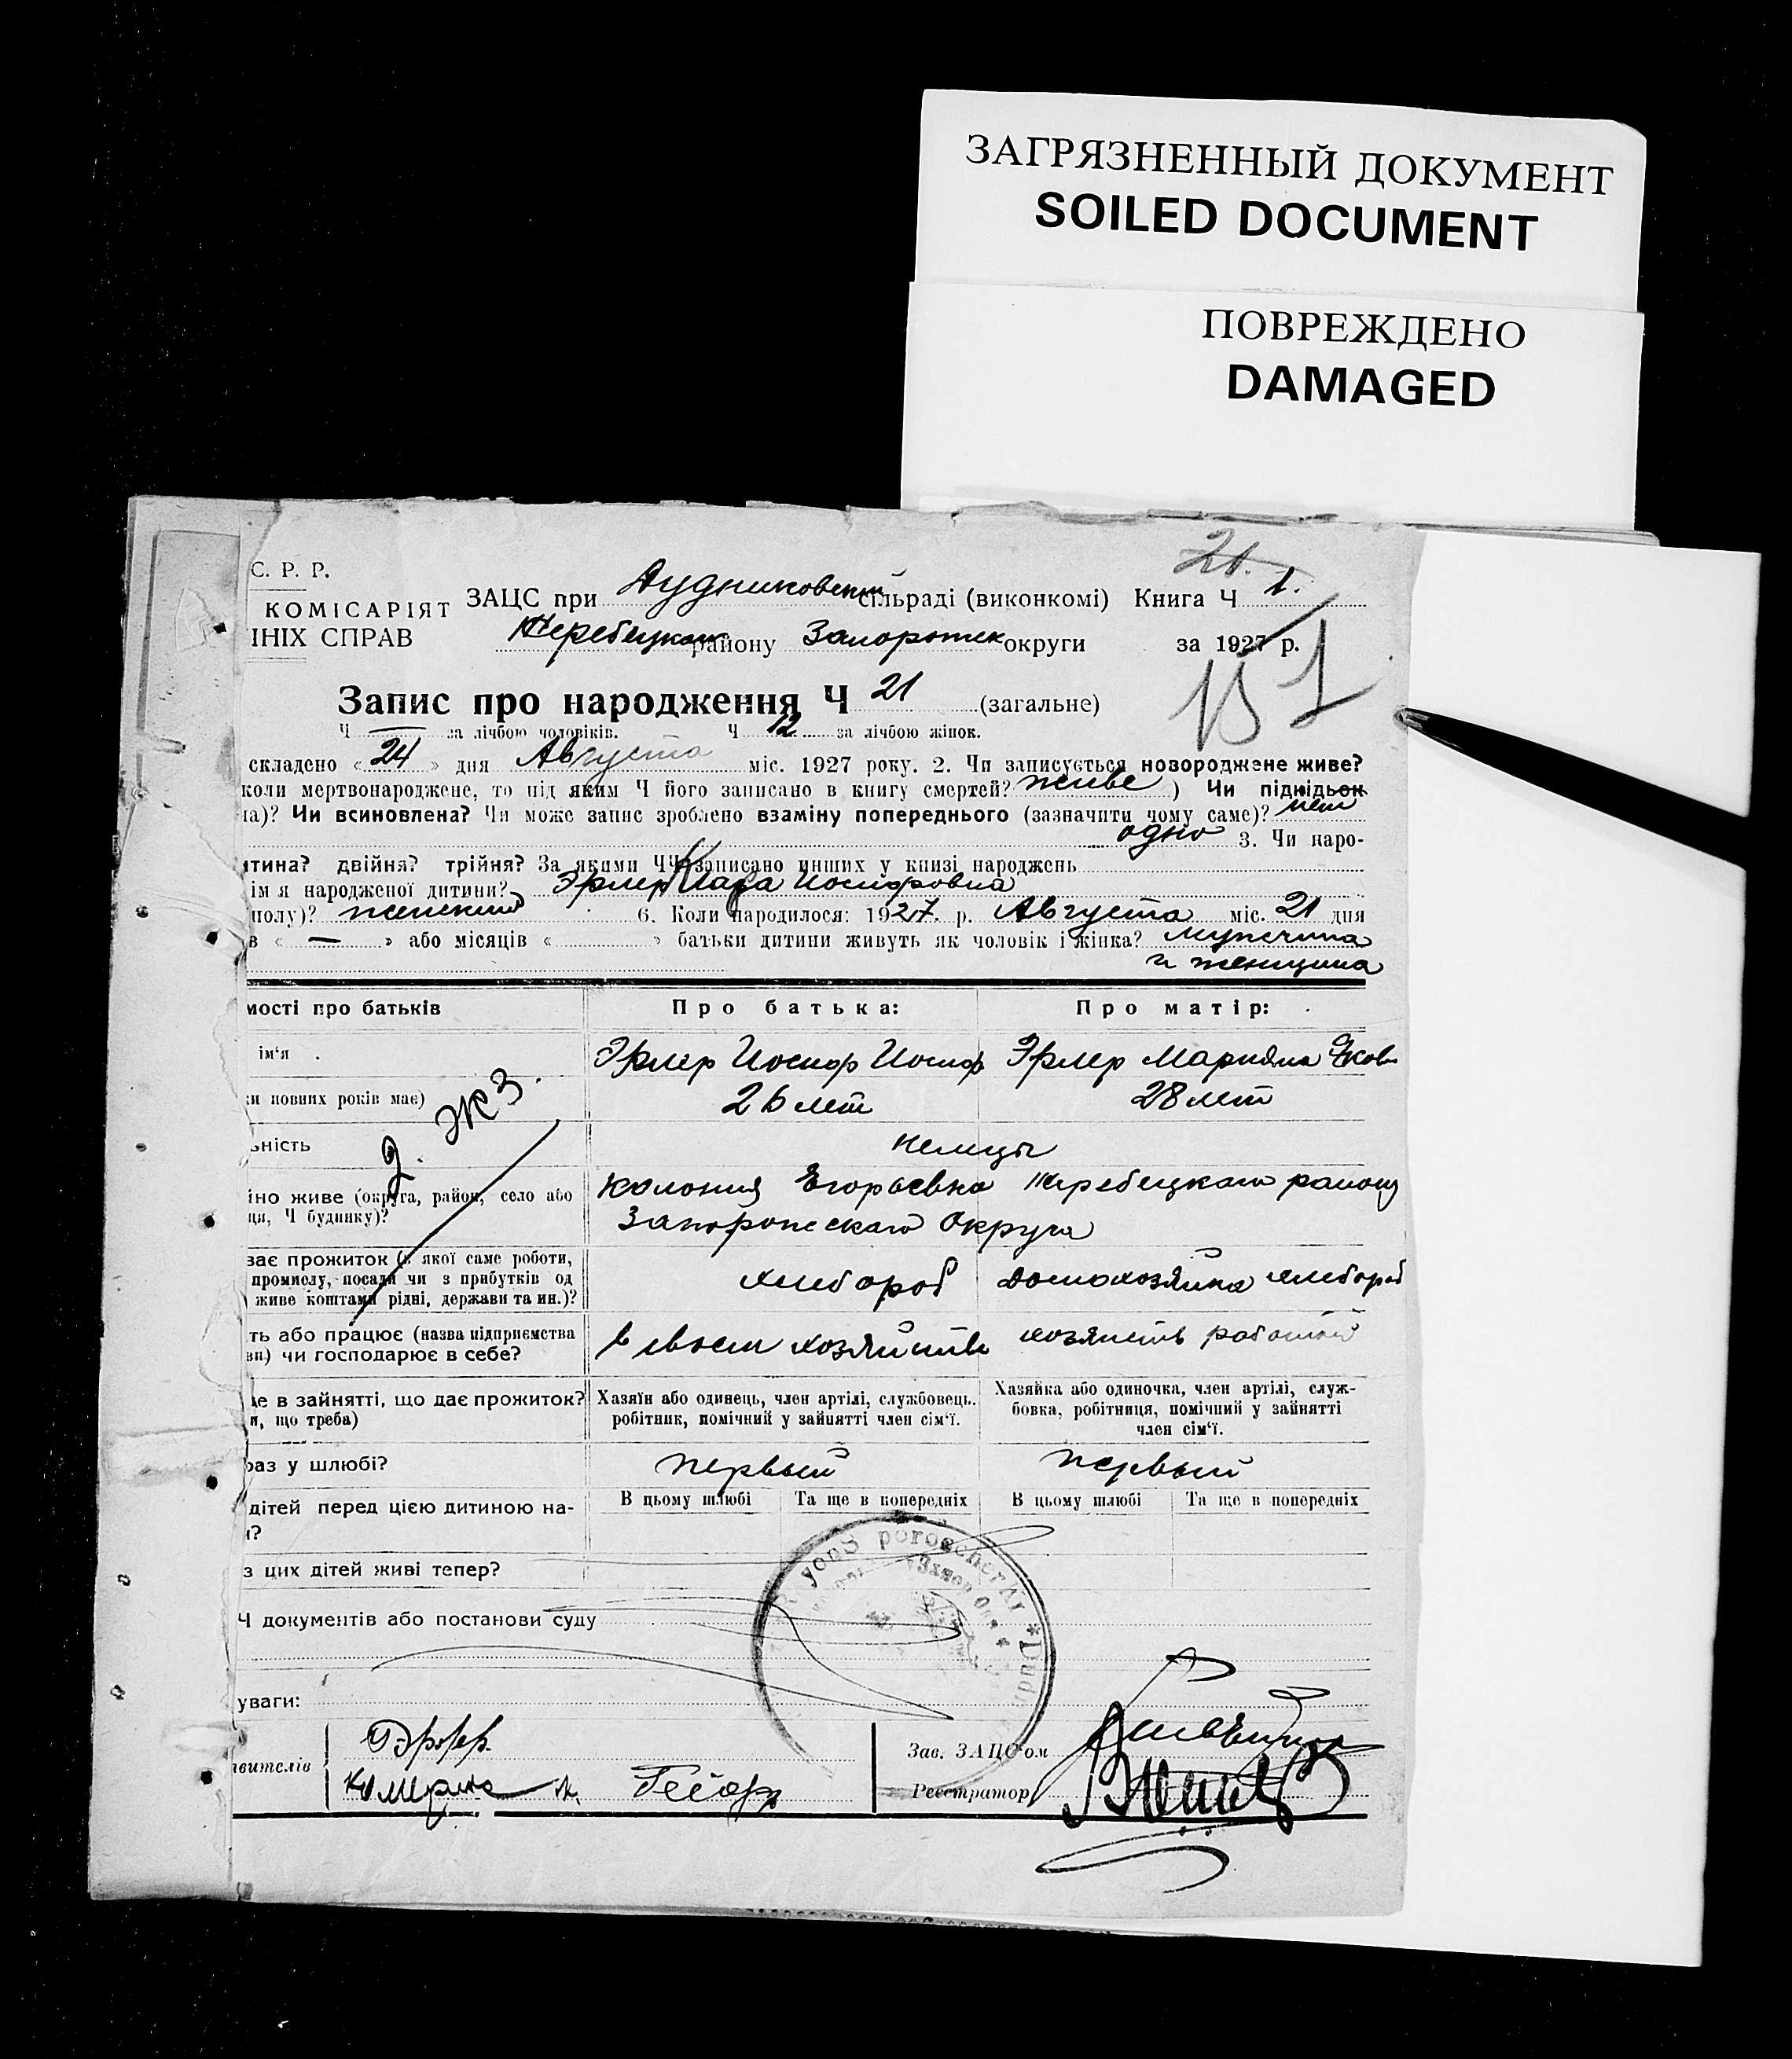 ЗАГРЯЗНЕННЫЙ ДОКУМЕНТ
SOILED DOCUMENT
ПОВРЕЖДЕНО
DAMAGED
21.
С. Р. Р.
КОМІСАРІЯТ ЗАЦС при сільраді (виконкомі) Книга Ч 1.
ІНІХ СПРАВ району округи за 1927 р.
Запис про народження Ч 21 (загальне)
Ч — за лічбою чоловіків. Ч 12 за лічбою жінок.
складено « 24 » дня Августа міс. 1927 року. 2. Чи записується новороджене живе?
коли мертвонароджене, то під яким Ч його записано в книгу смертей? живе ) Чи підкідьок
на)? Чи всиновлена? Чи може запис зроблено взаміну попереднього (зазначити чому саме)? нет
одно 3. Чи наро-
итина? двійня? трійня? За якими ЧЧ записано инших у книзі народжень
ім я народженої дитини? Эрлер Клара Иосифовна
полу)? женский 6. Коли народилося: 1927. р. Августа міс. 21 дня
в « — » або місяців « » батьки дитини живуть як чоловік і жінка? мужчина
и женщина
мості про батьків Про батька: Про матір:
ім'я Эрлер Иосиф Иосиф Эрлер Марияна Яковл
ки повних років має) 26 лет 28 лет
ьність немцы
2. экз.
йно живе (округа, район, село або колония Егорьевка Жеребецкаго района
ця, Ч будинку)? Запорожскаго Округа
ває прожиток (з якої саме роботи,
промислу, посади чи з прибутків од хлебороб домохозяйка хлебороб
живе коштами рідні, держави та ин.)?
ть або працює (назва підприємства в своем хозяйстве
ви) чи господарює в себе?
це в зайнятті, що дає прожиток? Хазяїн або одинець, член артілі, службовець. Хазяйка або одиночка, член артілі, служ-
и, що треба) робітник, помічний у зайнятті член сім'ї. бовка, робітниця, помічний у зайнятті
член сім'ї.
раз у шлюбі? первый первый
дітей перед цією дитиною на- В цьому шлюбі Та ще в попередніх В цьому шлюбі Та ще в попередніх
и?
з цих дітей живі тепер?
Ч документів або постанови суду
уваги:
явителів Зав. ЗАЦС-ом
Реєстратор